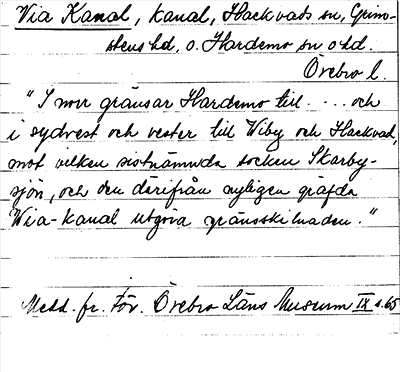 Via Kanal, kanal, Hackvads sn, Grim-
stens hd, o. Hardemo sn o hd.
Örebro l.
"I norr gränsar Hardemo till . ... och
i sydvest och vester till Wiby och Hackvad,
mot vilken sistnämnda socken Skarby-
sjön, och den därifrån nyligen gräfda
Wia-kanal utgöra gränsskilnaden."
Medd. fr. För. Örebro Läns Museum IX s. 65